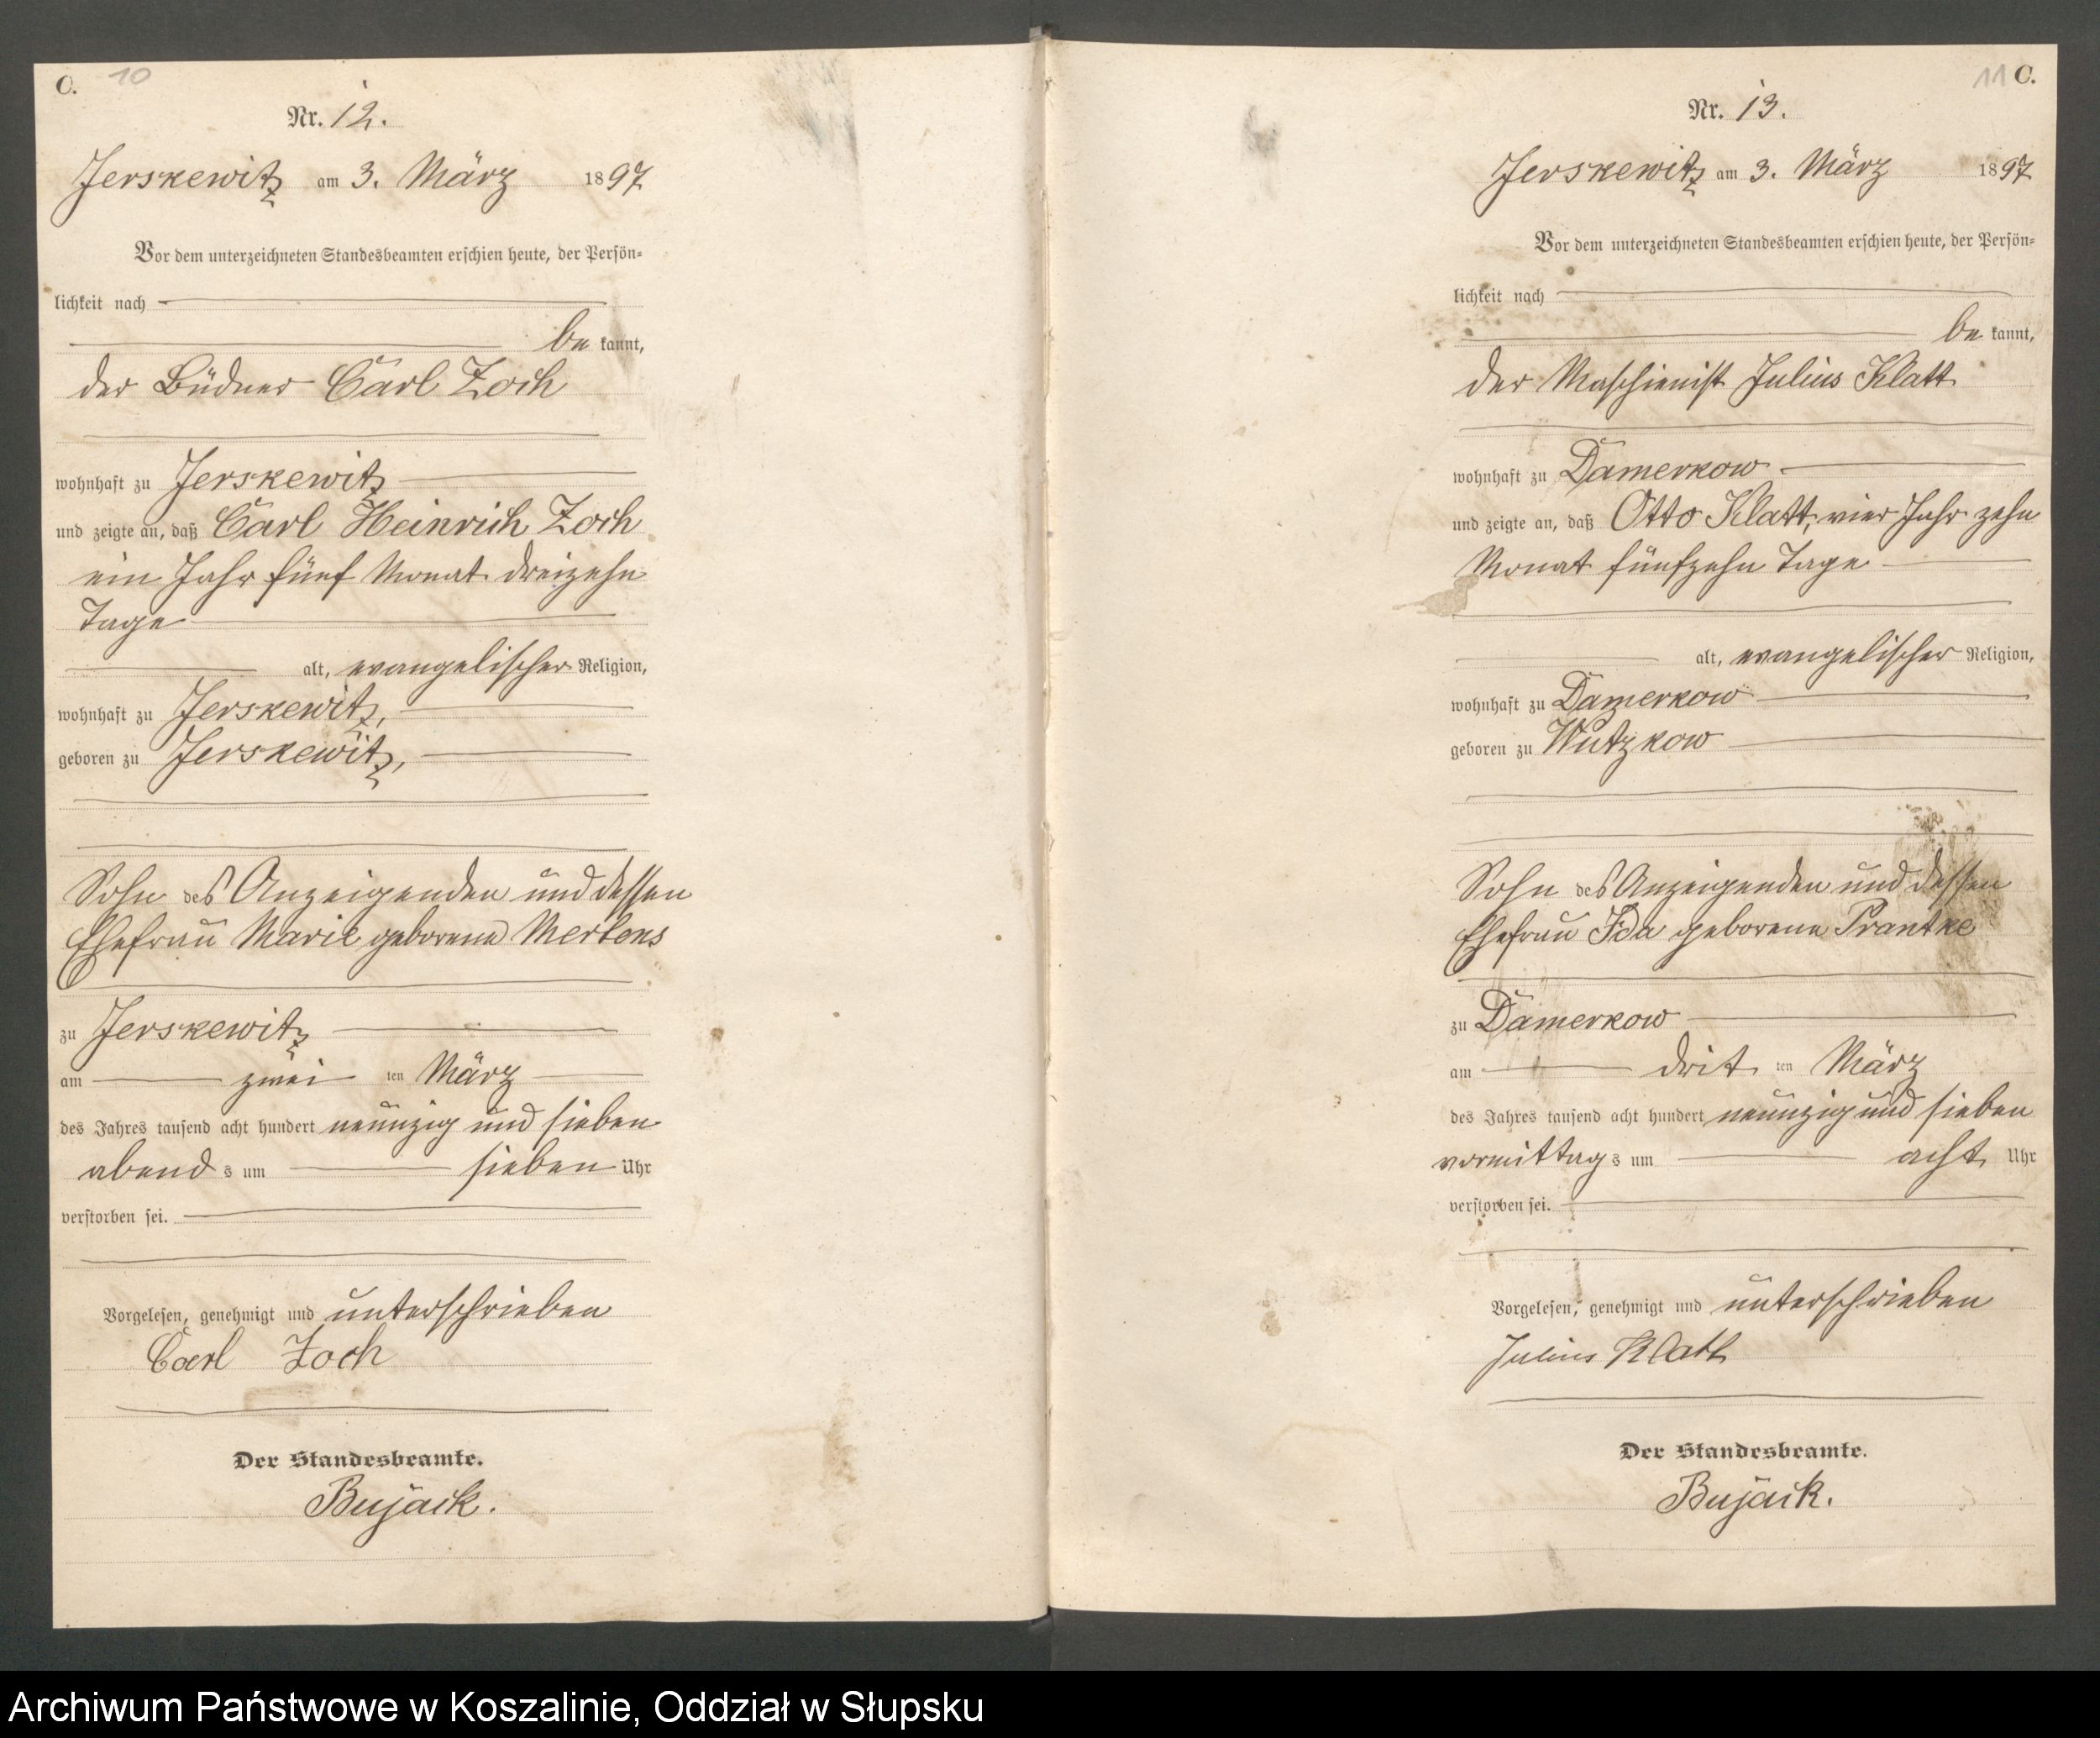 C. 10
Nr. 12.
Jerskewitz am 3. März 1897
Vor dem unterzeichneten Standesbeamten erschien heute, der Persön-
lichkeit nach
be kannt,
der Büdner Carl Zoch
wohnhaft zu Jerskewitz
und zeigte an, daß Carl Heinrich Zoch
ein Jahr fünf Monat dreizehn
Tage
alt, evangelischer Religion,
wohnhaft zu Jerskewitz,
geboren zu Jerskewitz,
Sohn des Anzeigenden und dessen
Ehefrau Marie geborene Mertens
zu Jerskewitz
am zwei ten März
des Jahres tausend acht hundert neunzig und sieben
abend s um sieben Uhr
verstorben sei.
Vorgelesen, genehmigt und unterschrieben
Carl Zoch
Der Standesbeamte.
Bujack.
11 C.
Nr. 13.
Jerskewitz am 3. März 1897
Vor dem unterzeichneten Standesbeamten erschien heute, der Persön-
lichkeit nach
be kannt,
der Maschienist Julius Klatt
wohnhaft zu Damerkow
und zeigte an, daß Otto Klatt, vier Jahr zehn
Monat fünfzehn Tage
alt, evangelischer Religion,
wohnhaft zu Damerkow
geboren zu Wutzkow
Sohn des Anzeigenden und dessen
Ehefrau Ida geborene Prantke
zu Damerkow
am drit ten März
des Jahres tausend acht hundert neunzig und sieben
vormittag s um acht Uhr
verstorben sei.
Vorgelesen, genehmigt und unterschrieben
Julius Klatt
Der Standesbeamte.
Bujack.
Archiwum Państwowe w Koszalinie, Oddział w Słupsku